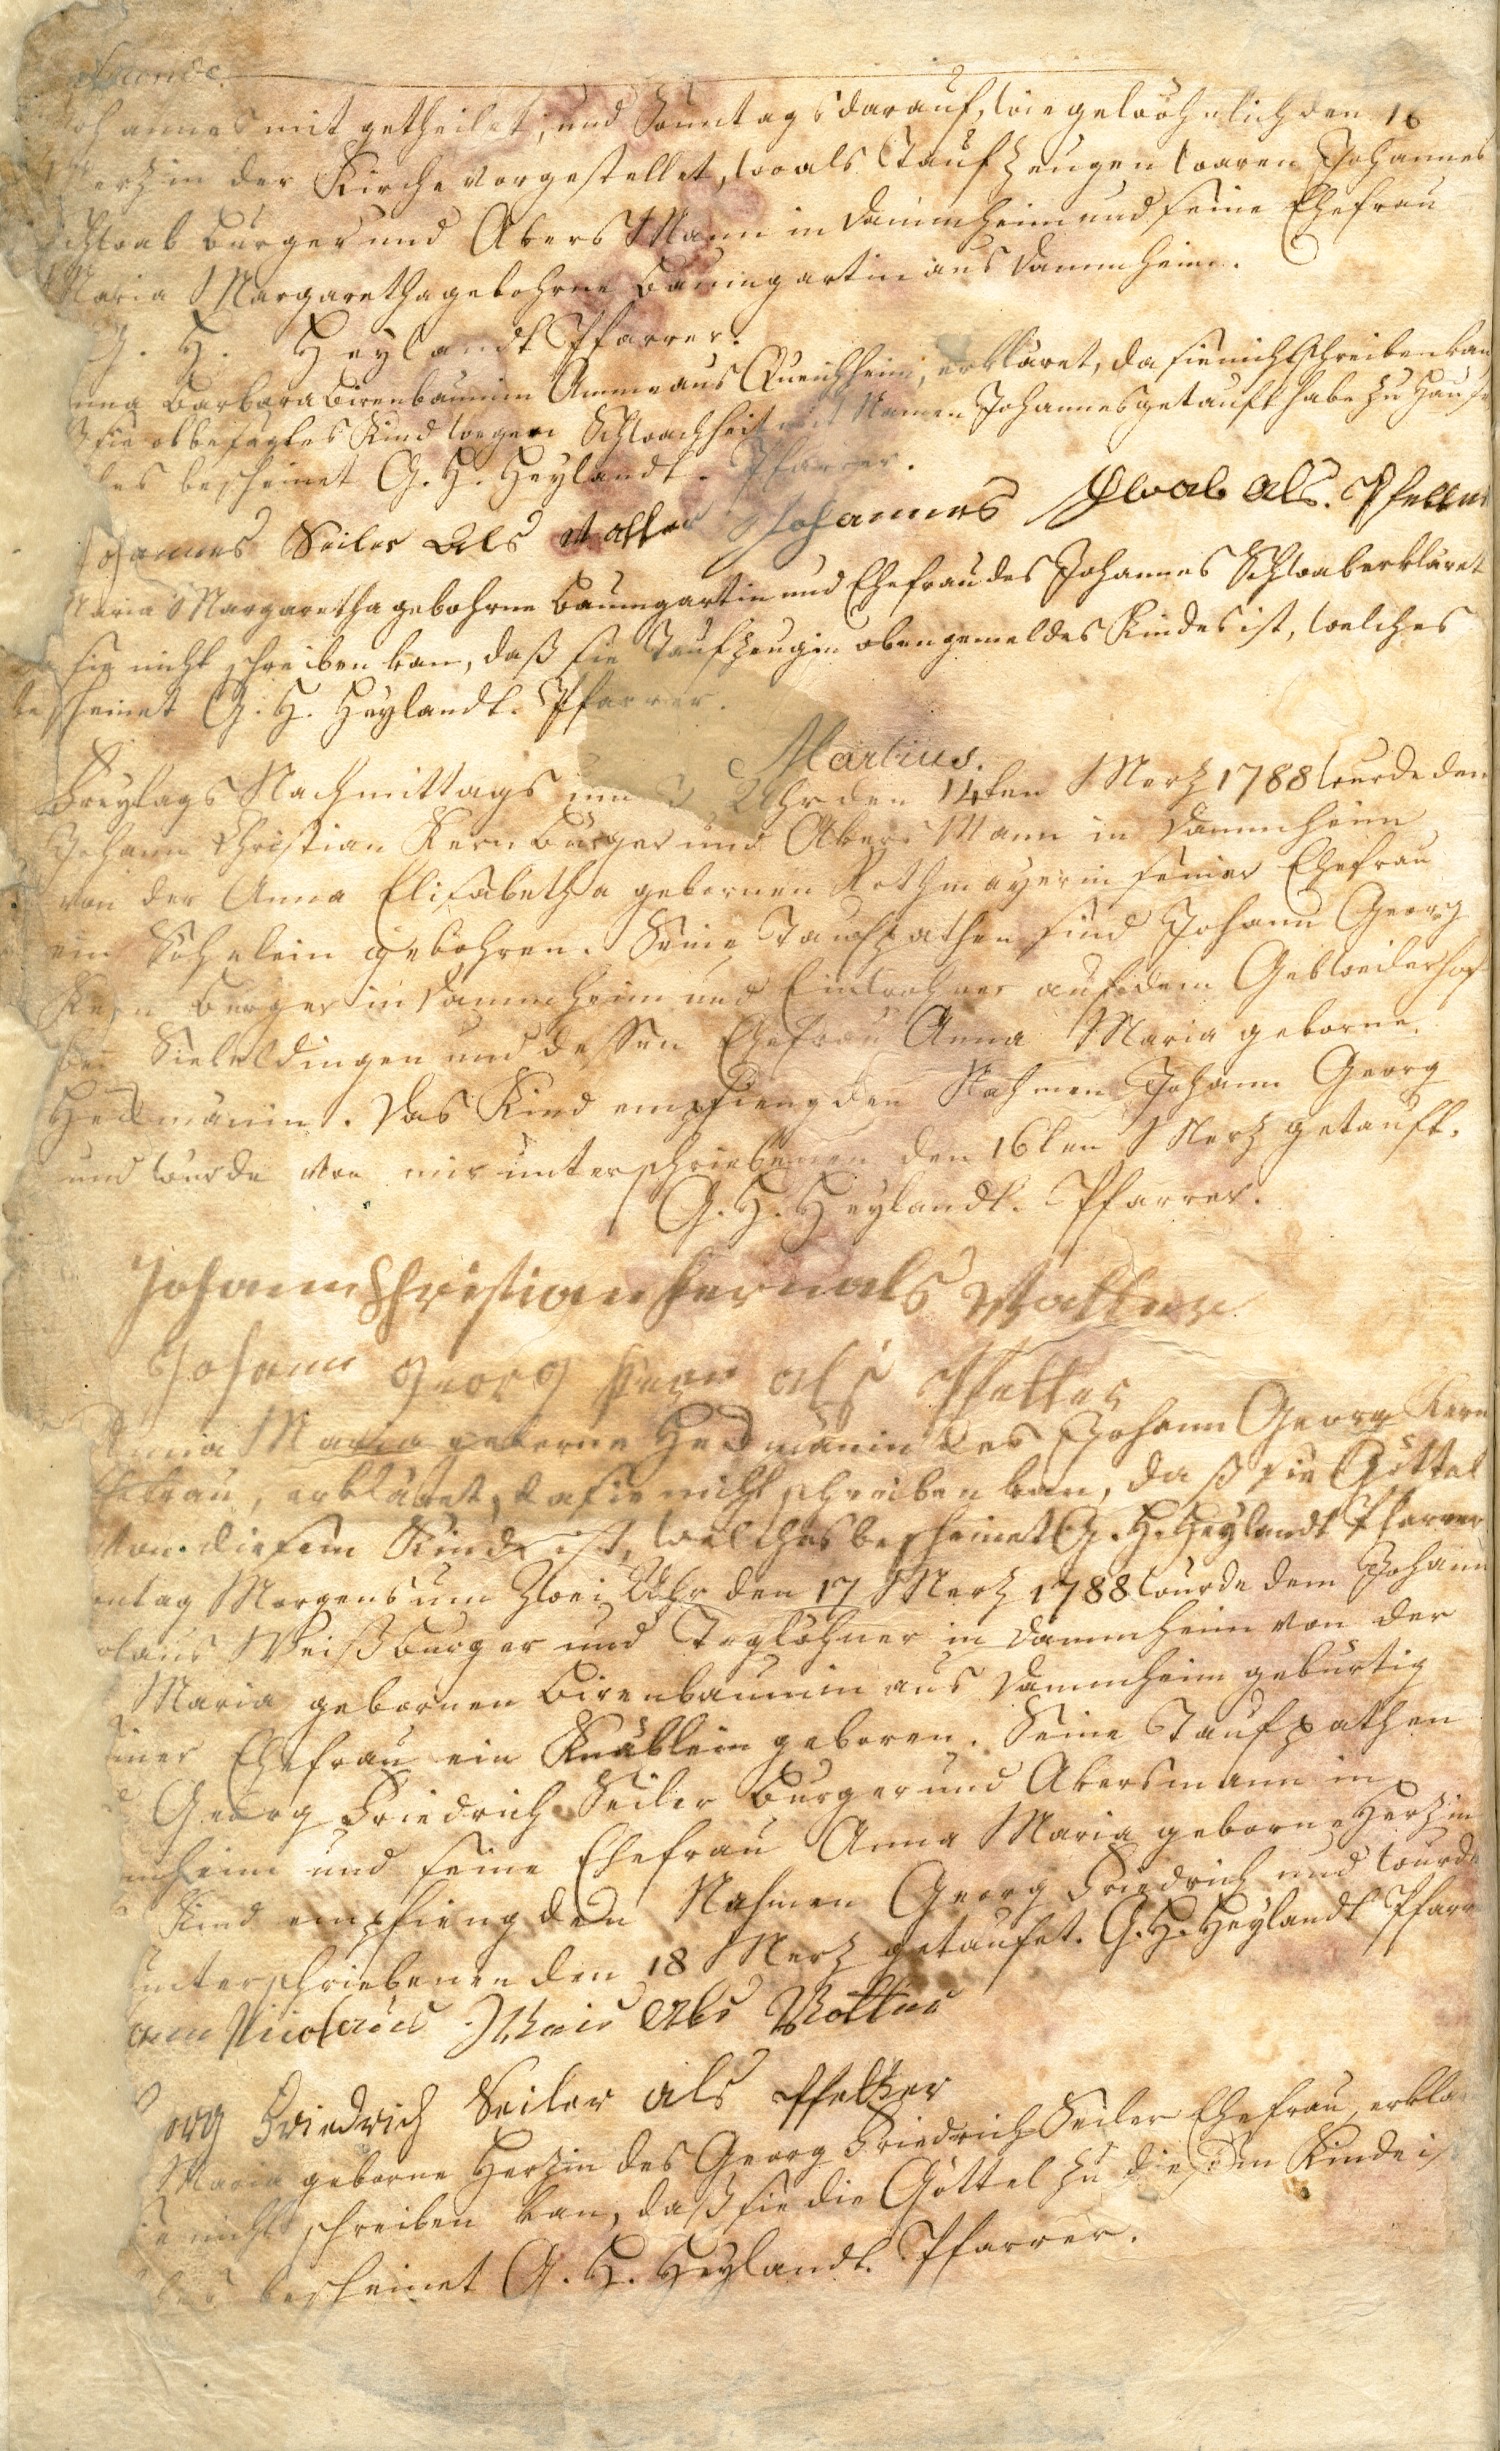 ohannes mit getheilet, und Sonntags darauf, wie gewöhnlich den 16
Merz in der Kirche vorgestellet, wo als Taufzeugen waren Johannes
Schwab Burger und Akers Mann in Dammheim und seine Ehefrau
Maria Margaretha gebohrne Baumgartin aus Dammheim.
G. H. Heylandt Pfarrer.
Barbara Birenbaumin Amme aus Queichheim, erkläret, da sie nicht schreiben kan
sie obbesagtes Kind wegen Schwachheit mit Namen Johannes getauft habe zu Hause
bescheinet G. H. Heylandt. Pfarrer.
Johannes Seiler als Vatter Johannes Schwab als Pfetter
Maria Margaretha gebohrne Baumgartin und Ehefrau des Johannes Schwab erkläret
sie nicht schreiben kan, daß sie Taufzeugin obengemeldes Kindes ist, welches
bescheinet G. H. Heylandt. Pfarrer.
Martius.
Freytags Nachmittags um Uhr den 14ten Merz 1788 wurde dem
Johann Christian Kern Burger und Akers Mann in Dammheim
von der Anna Elisabetha gebornen Rothmayerin seiner Ehefrau
ein Söhnlein gebohren. Seine Taufpathen sind Johann Georg
Kern Burger in Dammheim und Einwohner auf dem Gebweilerhof
bei Siebeldingen und dessen Ehefrau Anna Maria geborne
Hedmännin. Das Kind empfieng den Nahmen Johann Georg
und wurde von mir unterschriebenen den 16ten Merz getauft.
G. H. Heylandt. Pfarrer.
Johann Christian Kern als Vatter
Johann Georg Kern als Pfetter
Anna Maria geborne Hedmännin des Johann Georg Kern
Ehefrau, erkläret, da sie nicht schreiben kan, daß sie Göttel
von diesem Kinde ist, welches bescheinet G. H. Heylandt Pfarrer
ntag Morgens um zwei Uhr den 17 Merz 1788 wurde dem Johann
olaus Weiß Burger und Taglöhner in Dammheim von der
Maria gebornen Birenbaumin aus Dammheim gebürtig
iner Ehefrau ein Knäblein geboren. Seine Taufpathen
Georg Friedrich Seiler Burger und Akersmann in
mheim und seine Ehefrau Anna Maria geborne Herzin
Kind empfieng den Nahmen Georg Friedrich und wurde
unterschriebenen den 18 Merz getaufet. G. H. Heylandt Pfarr
ann Nicolaus Weis als Vatter
org Friedrich Seiler als Pfetter
Maria geborne Herzin des Georg Friedrich Seiler Ehefrau, erklä
ie nicht schreiben kan, daß sie die Göttel zu diesem Kinde is
bescheinet G. H. Heylandt. Pfarrer.